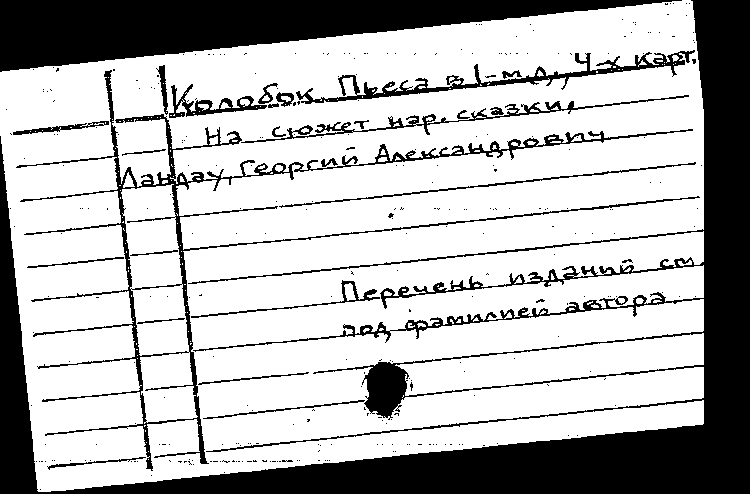 Колобок. Пьеса в 1-м д., 4-х карт.
На сюжет нар. сказки.
Ландау, Георгий Александрович
Перечень изданий см.
под фамилией автора.